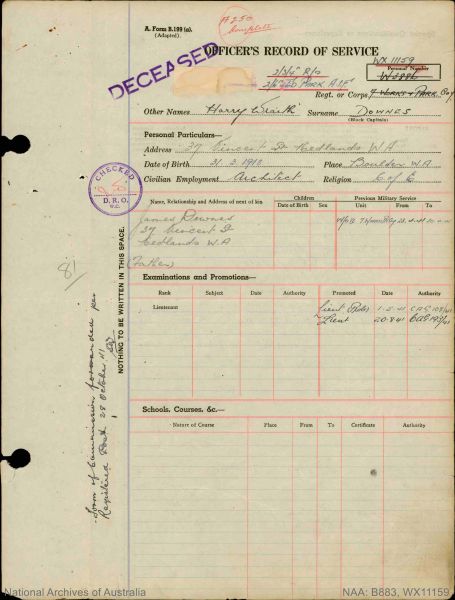 A. Form B.199 (a).
(Adapted).
#250
Complete
OFFICER'S RECORD OF SERVICE
DECEASED
WX 11159
Personal Number
2/3/4
Regt. or Corps
Other Names Harry Wraith Surname DOWNES
(Block Capitals)
Personal Particulars—
Address 37 Vincent St Nedlands W.A
Date of Birth 21.3.1912 Place Boulder W.A
Civilian Employment Architect Religion C of E
Name, Relationship and Address of next of kin
Children
Date of Birth Sex
Previous Military Service
Unit From To
James Downes
37 Vincent St
Nedlands W.A
(Father)
CHECKED
D.R.O.
W.C.
81
NOTHING TO BE WRITTEN IN THIS SPACE.
Form of Commission forwarded per
Registered Post 28 October 41
Examinations and Promotions—
Rank Subject Date Authority Promoted Date Authority
Lieutenant
Lieut 1-5-41
Lieut 20.8.41
Schools, Courses, &c.—
Nature of Course Place From To Certificate Authority
National Archives of Australia
NAA: B883, WX11159